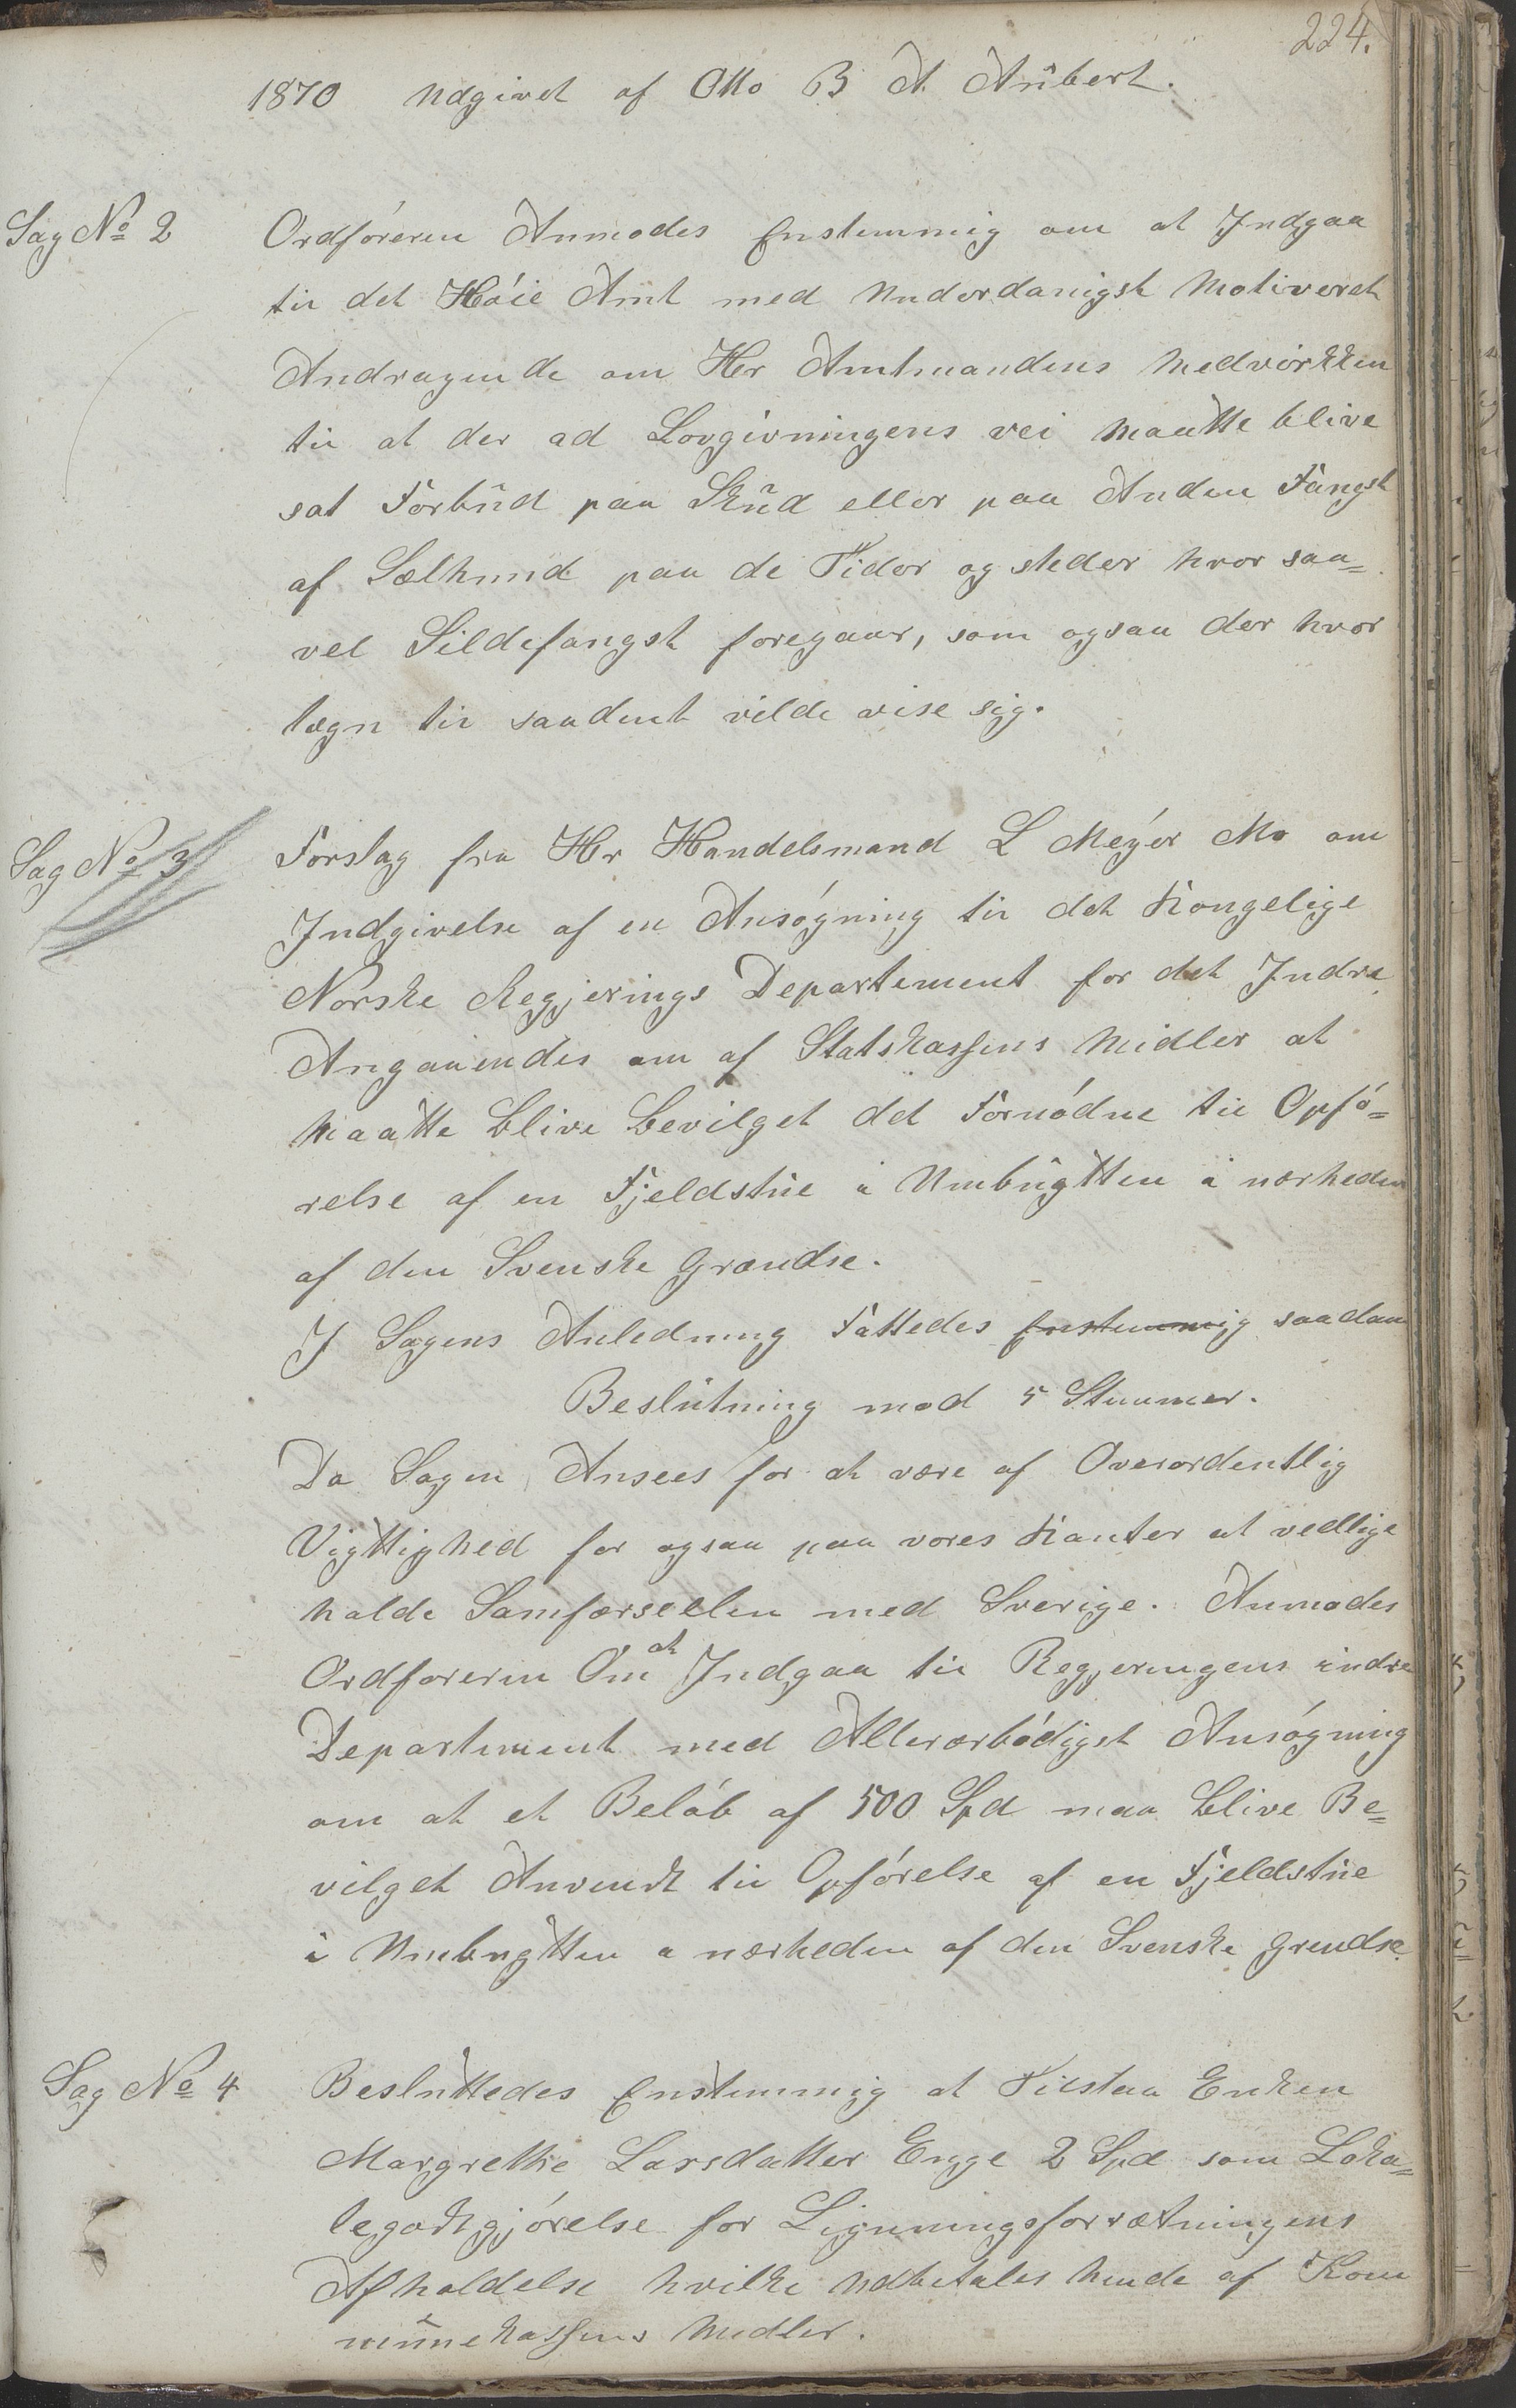 224.
1870 Udgivet af Otto B A. Aubert.
Sag No 2
Ordføreren Anmodes Enstemmig om at Indgaa
til det Høie Amt med Underdanigst Motiveret
Andragende om Her Amtmandens Medvirkken
til at der ad Lovgivningens vei Maatte blive
sat Forbud paa Skud eller paa Anden Fangst
af Sælhund paa de Tider og steder hvor saa=
vel Sildefangst foregaar, som ogsaa der hvor
tegn til saadent vilde vise sig.
Sag No 3
Forslag fra Hr Handelsmand L Meyer Mo om
Indgivelse af en Ansøgning til det Kongelige
Norske Regjerings Departement for det Indre
Angaaendes om af Statskassens Midler at
Maatte blive bevilget det Fornødne til Opfø=
relse af en Fjeldstue i Umbugtten i nærheden
af den Svenske Grændse.
I Sagens Anledning Fattedes Enstemmig saadan
Beslutning mod 5 Stemmer.
Da Sagen Ansees for at være af Overordentlig
Vigttighed for ogsaa paa vores Kanter at vedlige
holde Samfærseelen med Sverige. Anmodes
Ordføreren Om at Indgaa til Regjeringens indre
Departement med Allerærbødigst Ansøgning
om at et Beløb af 500 Spd maa blive Be=
vilget Anvendt til Opførelse af en Fjeldstue
i Umbugtten i nærheden af den Svenske Grendse.
Sag No 4
Besluttedes Enstemmig at Tilstaa Enken
Margrethe Larsdatter Enge 2 Spd som Loka=
legodtgjørelse for Ligningsforrætningens
Afholdelse hvilke Udbetales hende af Kom
munekassens Midler.